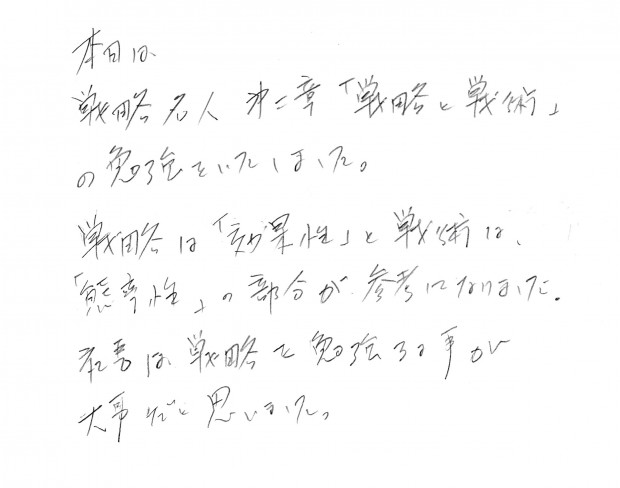 本日は、
戦略名人 第二章「戦略と戦術」
の勉強をいたしました。
戦略は「効果性」と戦術は、
「能率性」の部分が参考になりました。
社長は、戦略を勉強する事が
大事だと思いました。